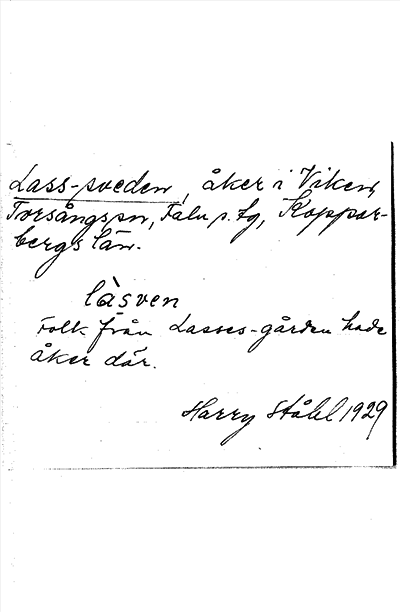 Lass-sveden, åker i Viken,
Torsångs sn, Falu s. tg, Koppar-
bergs län.
låsven
Folk från Lasses-gården hade
åker där.
Harry Ståhl 1929